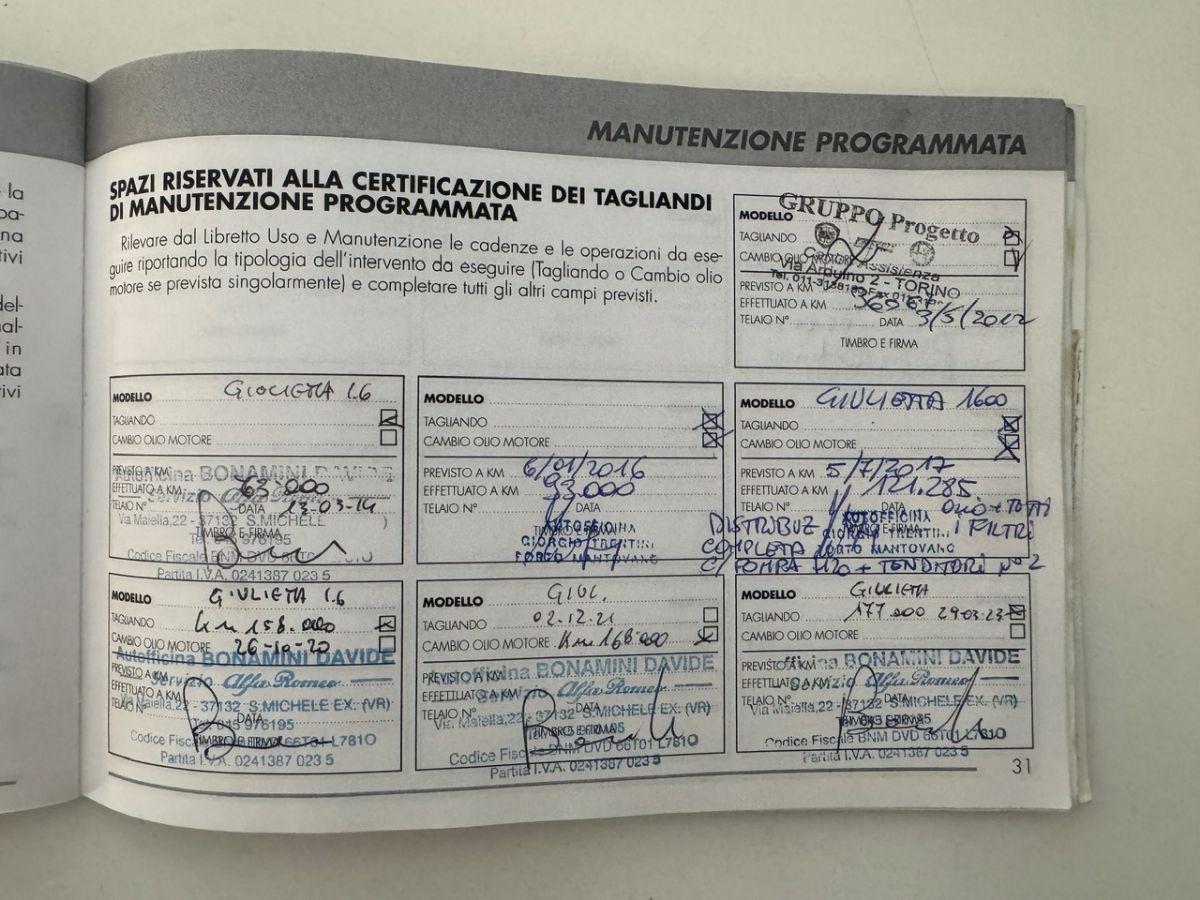 la
pa-
na
tivi
del-
nal-
in
ata
tivi
MANUTENZIONE PROGRAMMATA
SPAZI RISERVATI ALLA CERTIFICAZIONE DEI TAGLIANDI
DI MANUTENZIONE PROGRAMMATA
Rilevare dal Libretto Uso e Manutenzione le cadenze e le operazioni da ese-
guire riportando la tipologia dell'intervento da eseguire (Tagliando o Cambio olio
motore se prevista singolarmente) e completare tutti gli altri campi previsti.
MODELLO
GRUPPO Progetto
TAGLIANDO
CAMBIO OLIO MOTORE
Assistenza
Via Arduino 2 - TORINO
PREVISTO A KM
EFFETTUATO A KM
TELAIO N° DATA 3/5/2012
TIMBRO E FIRMA
MODELLO GIOLIETTA 1.6
TAGLIANDO
CAMBIO OLIO MOTORE
PREVISTO A KM
Autofficina BONAMINI DAVIDE
EFFETTUATO A KM 63.000
Servizio Alfa Romeo
TELAIO N° DATA 13-03-14
Via Maiella,22 - 37132 S.MICHELE
TIMBRO E FIRMA
976195
Codice Fiscale BNM DVD
Partita I.V.A. 0241387 023 5
MODELLO
TAGLIANDO
CAMBIO OLIO MOTORE
PREVISTO A KM 6/01/2016
EFFETTUATO A KM 93.000
TELAIO N° DATA
TIMBRO E FIRMA
AUTOFFICINA
GIORGIO TRENTINI
PORTO MANTOVANO
MODELLO GIULIETTA 1600
TAGLIANDO
CAMBIO OLIO MOTORE
PREVISTO A KM 5/7/2017
EFFETTUATO A KM 121.285
TELAIO N° DATA OLIO + TUTTI
I FILTRI
AUTOFFICINA
GIORGIO TRENTINI
PORTO MANTOVANO
DISTRIBUZ
COMPLETA
C/ POMPA H2O + TENDITORI N° 2
MODELLO GIULIETTA 1.6
TAGLIANDO Km 158.000
CAMBIO OLIO MOTORE 26-10-20
Autofficina BONAMINI DAVIDE
PREVISTO A KM
Servizio Alfa Romeo
EFFETTUATO A KM
Via Maiella,22 - 37132 S.MICHELE EX. (VR)
TELAIO N° DATA
Tel. 045 976195
TIMBRO E FIRMA
Codice Fiscale BNM DVD 66T01 L781O
Partita I.V.A. 0241387 023 5
MODELLO GIUL.
TAGLIANDO 02-12-21
CAMBIO OLIO MOTORE Km 168.000
Autofficina BONAMINI DAVIDE
PREVISTO A KM
Servizio Alfa Romeo
EFFETTUATO A KM
Via Maiella,22 - 37132 S.MICHELE EX. (VR)
TELAIO N° DATA
TIMBRO E FIRMA
Codice Fiscale BNM DVD 66T01 L781O
Partita I.V.A. 0241387 023 5
MODELLO GIULIETTA
TAGLIANDO 177.000 29-03-23
CAMBIO OLIO MOTORE
Autofficina BONAMINI DAVIDE
PREVISTO A KM
Servizio Alfa Romeo
EFFETTUATO A KM
Via Maiella,22 - 37132 S.MICHELE EX. (VR)
TELAIO N° DATA
TIMBRO E FIRMA
Codice Fiscale BNM DVD 66T01 L781O
Partita I.V.A. 0241387 023 5
31